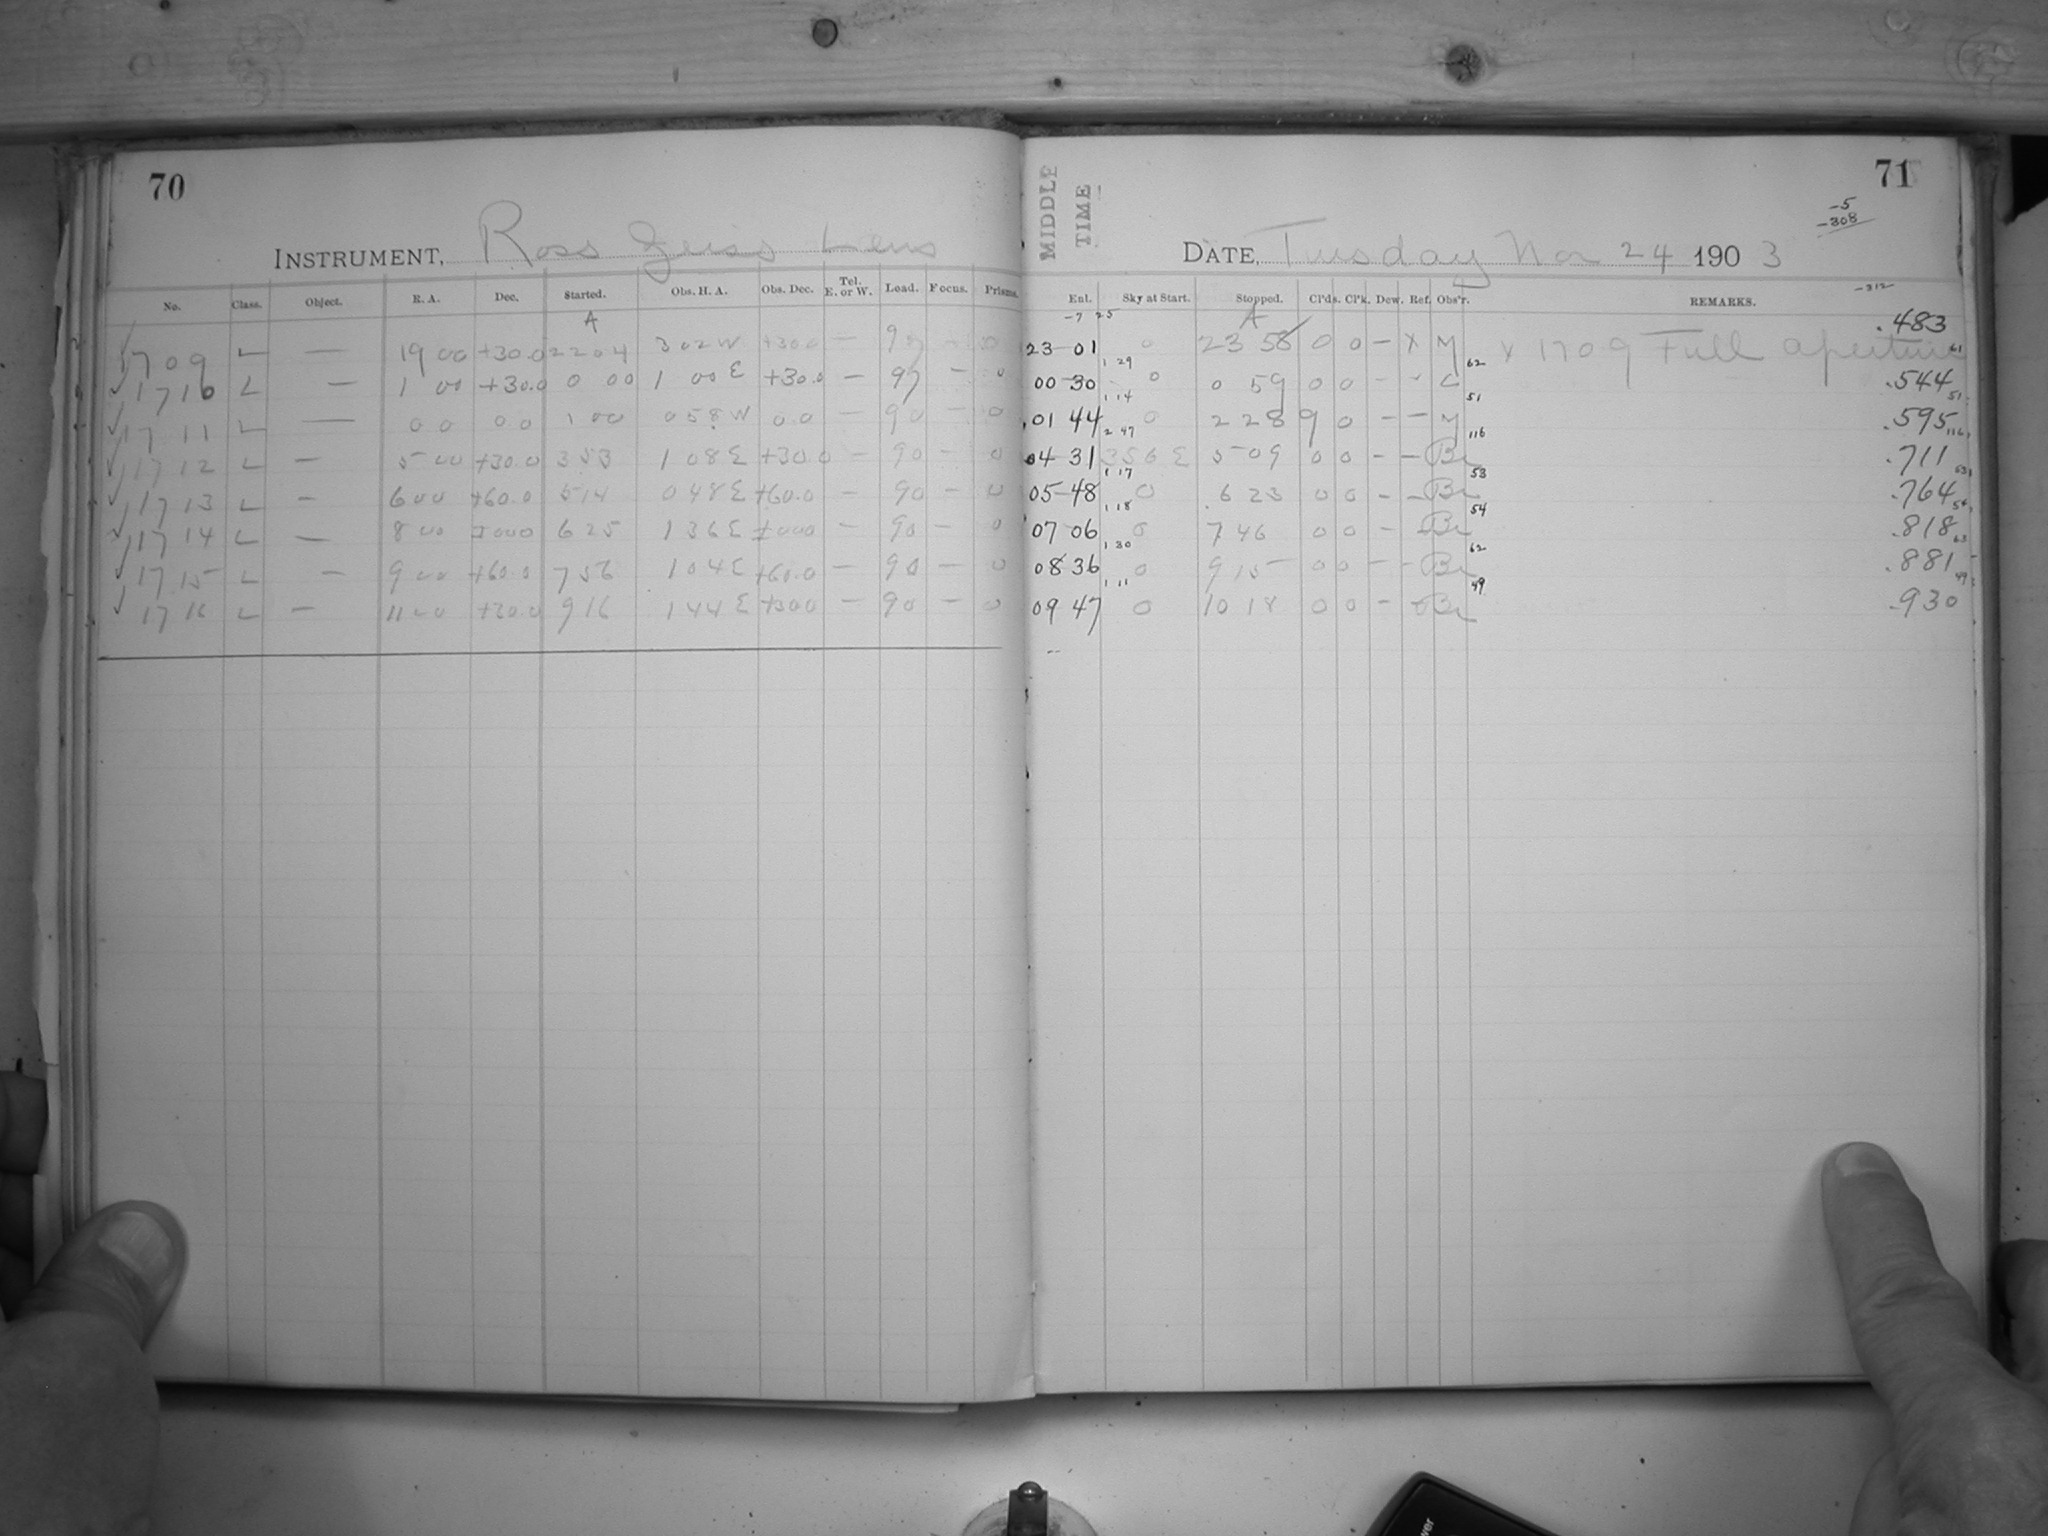 70
INSTRUMENT, Ross Zeiss Lens
No. Class. Object. R. A. Dec. Started. Obs. H. A. Obs. Dec. Tel. E. or W. Load. Focus. Prisms.
A
1709 L — 19 00 +30.0 22 04 3 02 W +30.0 — 90 0
1710 L — 1 00 +30.0 0 00 1 00 E +30.0 — 90 — 0
1711 L — 0 0 0.0 1 00 0 58 W 0.0 — 90 — 0
1712 L — 5 00 +30.0 3 53 1 08 E +30.0 — 90 — 0
1713 L — 6 00 +60.0 5 14 0 48 E +60.0 — 90 — 0
1714 L — 8 00 ±000 6 25 1 36 E ±000 — 90 — 0
1715 L — 9 00 +60.0 7 56 1 04 E +60.0 — 90 — 0
1716 L — 11 00 +30.0 9 16 1 44 E +30.0 — 90 — 0
MIDDLE TIME
71
-5
-308
DATE, Tuesday Nov 24 1903
Ent. Sky at Start. Stopped. Cl'ds. Cl'k. Dew. Ref. Obs'r. REMARKS.
-312
-7 25 A
23 01 0 23 58 0 0 — x M x 1709 Full aperture .483
1 29 62 61
00 30 0 0 59 0 0 - - C .544
1 14 51 51
01 44 0 2 28 9 0 — — M .595
2 47 116 116
04 31 356 E 5 09 0 0 — — Br .711
1 17 53 53
05 48 0 6 23 0 0 - - Br .764
1 18 54 54
07 06 0 7 46 0 0 - Br .818
1 30 62 63
08 36 0 9 15 0 0 — - Br .881
1 11 49 49
09 47 0 10 18 0 0 - - Br .930